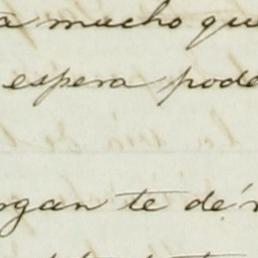 a mucho qu
espera pode
rgan te dé